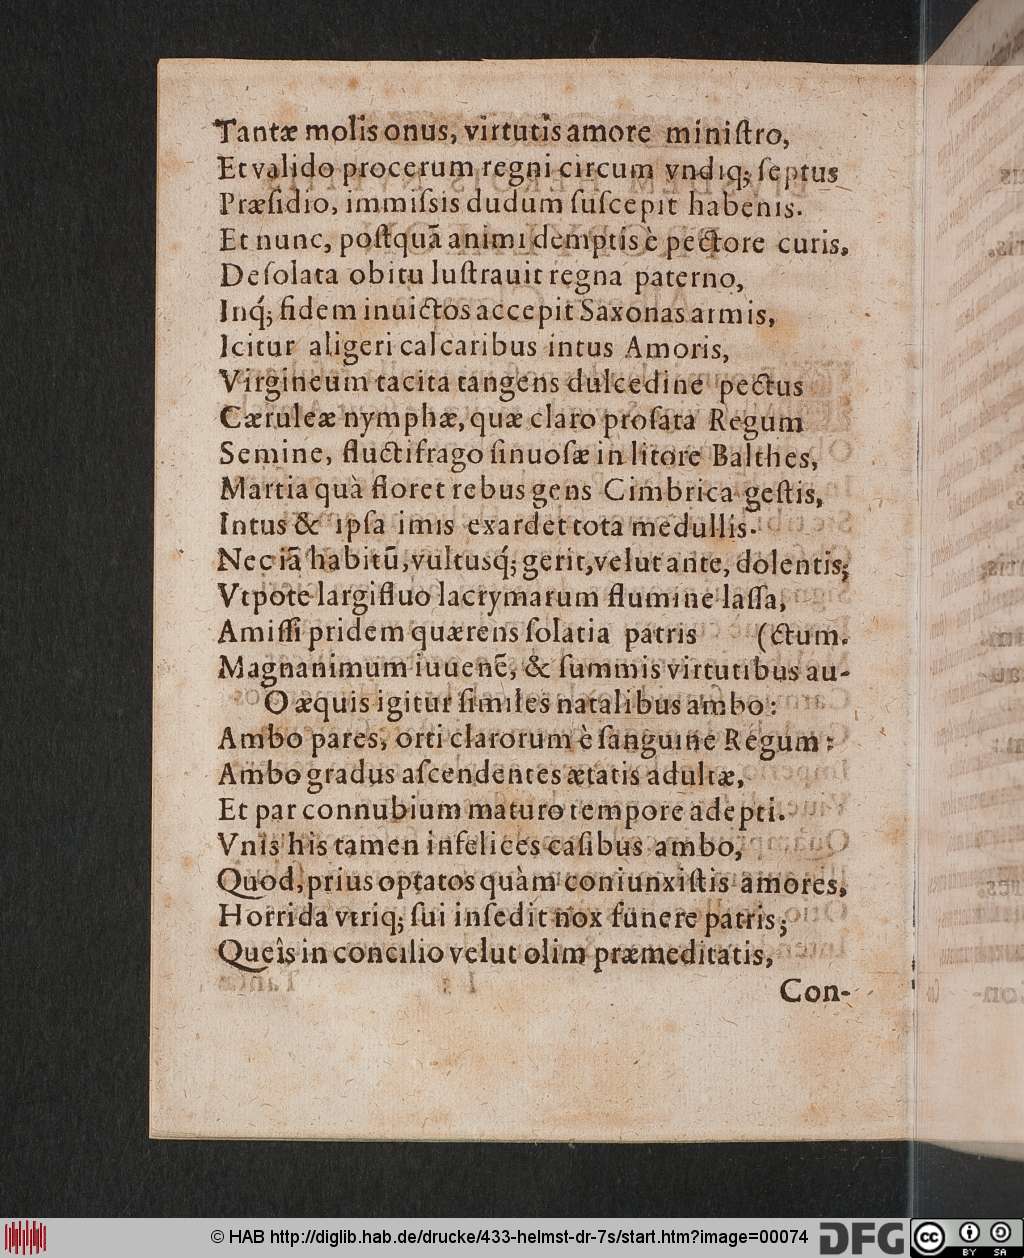 Tantæ molis onus, virtutis amore miniſtro,
Et valido procerum regni circum vndiq; ſeptus
Præſidio, immiſsis dudum ſuſcepit habenis.
Et nunc, poſtquã animi demptis è pectore curis,
Deſolata obitu luſtrauit regna paterno,
Inq́; fidem inuictos accepit Saxonas armis,
Icitur aligeri calcaribus intus Amoris,
Virgineum tacita tangens dulcedine pectus
Cæruleæ nymphæ, quæ claro proſata Regum
Semine, fluctifrago ſinuoſæ in litore Balthes,
Martia quà floret rebus gens Cimbrica geſtis,
Intus & ipſa imis exardet tota medullis.
Nec iã habitũ, vultusq́; gerit, velut ante, dolentis;
Vtpote largifluo lacrymarum flumine laſſa,
Amiſſi pridem quærens ſolatia patris (ctum.
Magnanimum iuuenẽ, & ſummis virtutibus au-
O æquis igitur ſimiles natalibus ambo:
Ambo pares, orti clarorum è ſanguine Regum:
Ambo gradus aſcendentes ætatis adultæ,
Et par connubium maturo tempore adepti.
Vnis his tamen infelices caſibus ambo,
Quod, prius optatos quàm coniunxiſtis amores,
Horrida vtriq; ſui inſedit nox funere patris;
Queîs in concilio velut olim præmeditatis,
Con-
© HAB http://diglib.hab.de/drucke/433-helmst-dr-7s/start.htm?image=00074 DFG cc BY SA